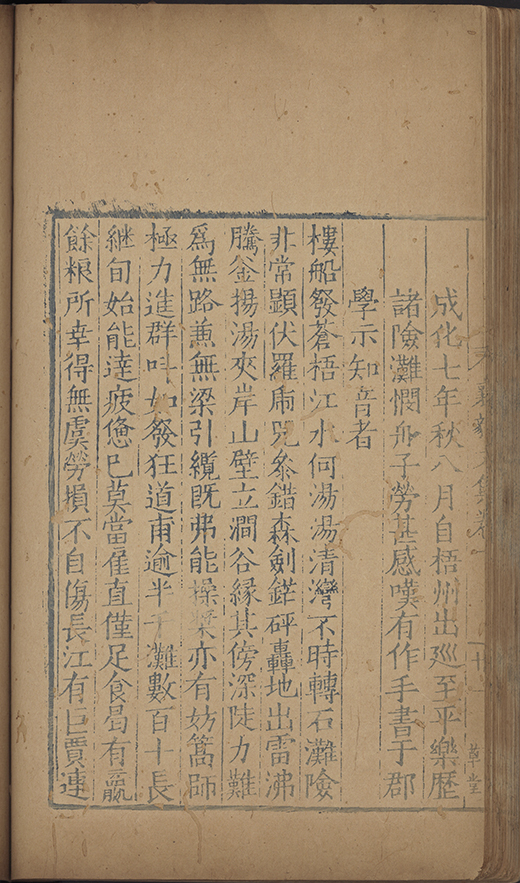 襄毅文集卷一
草堂
成化七年秋八月自梧州出廵至平樂歷
諸險灘憫舟子勞甚感嘆有作手書于郡
學示知音者
樓船發蒼梧江水何湯湯清灣不時轉石灘險
非常顯伏羅虎兕叅錯森劍鋩砰轟地出雷沸
騰釜揚湯夾岸山壁立澗谷縁其傍深陡力難
爲無路兼無梁引纜既弗能操槳亦有妨篙師
極力進群呌如發狂道甫逾半千灘數百十長
継旬始能達疲憊已莫當雇直僅足食曷有贏
餘粮所幸得無虞勞損不自傷長江有巨賈連